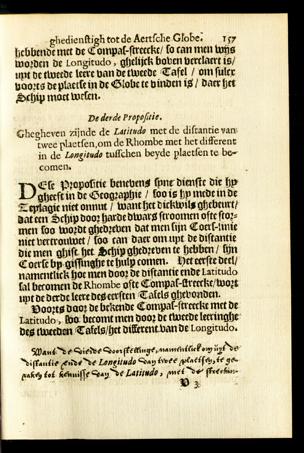 ghedienstigh tot de Aertsche Globe. 157
hebbende met de Compas-streecke/ so can men wijs
worden de Longitudo, ghelijck boven verclaert is/
uyt de tweede leere van de tweede Tafel / om sulcx
voorts de plaetse in de Globe te vinden is / daer het
Schip moet wesen.
De derde Propositie.
Ghegheven zijnde de Latitudo met de distantie van
twee plaetsen, om de Rhombe met het different
in de Longitudo tusschen beyde plaetsen te be-
comen.
DEse Propositie benevens hynt dienste die hy
gheeft in de Geographie / soo is hy mede in de
Zeylagie niet onnut / want het dickwils ghebeurt/
dat een Schip door harde dwars stroomen ofte stor-
men soo wordt ghedreven dat men sijn Coers-linie
niet vertrouwet / soo can daer om uyt de distantie
die men ghist het Schip ghedreven te hebben / sijn
Coerse by gissinghe te hulp comen. Het eerste deel/
namentlick hoe men door de distantie ende Latitudo
sal becomen de Rhombe ofte Compas-streecke/ wort
uyt de derde leere des eersten Tafels ghevonden.
Voorts door de bekende Compas-streecke met de
Latitudo, soo becomt men door de tweede leeringhe
des tweeden Tafels/ het different van de Longitudo.
Want de vierde voorstellinge, namentlick om uyt de
distantie ende de Longitudo van twee plaetsen, te ge-
raken tot kennisse van de Latitudo, met de streecken-
V 3